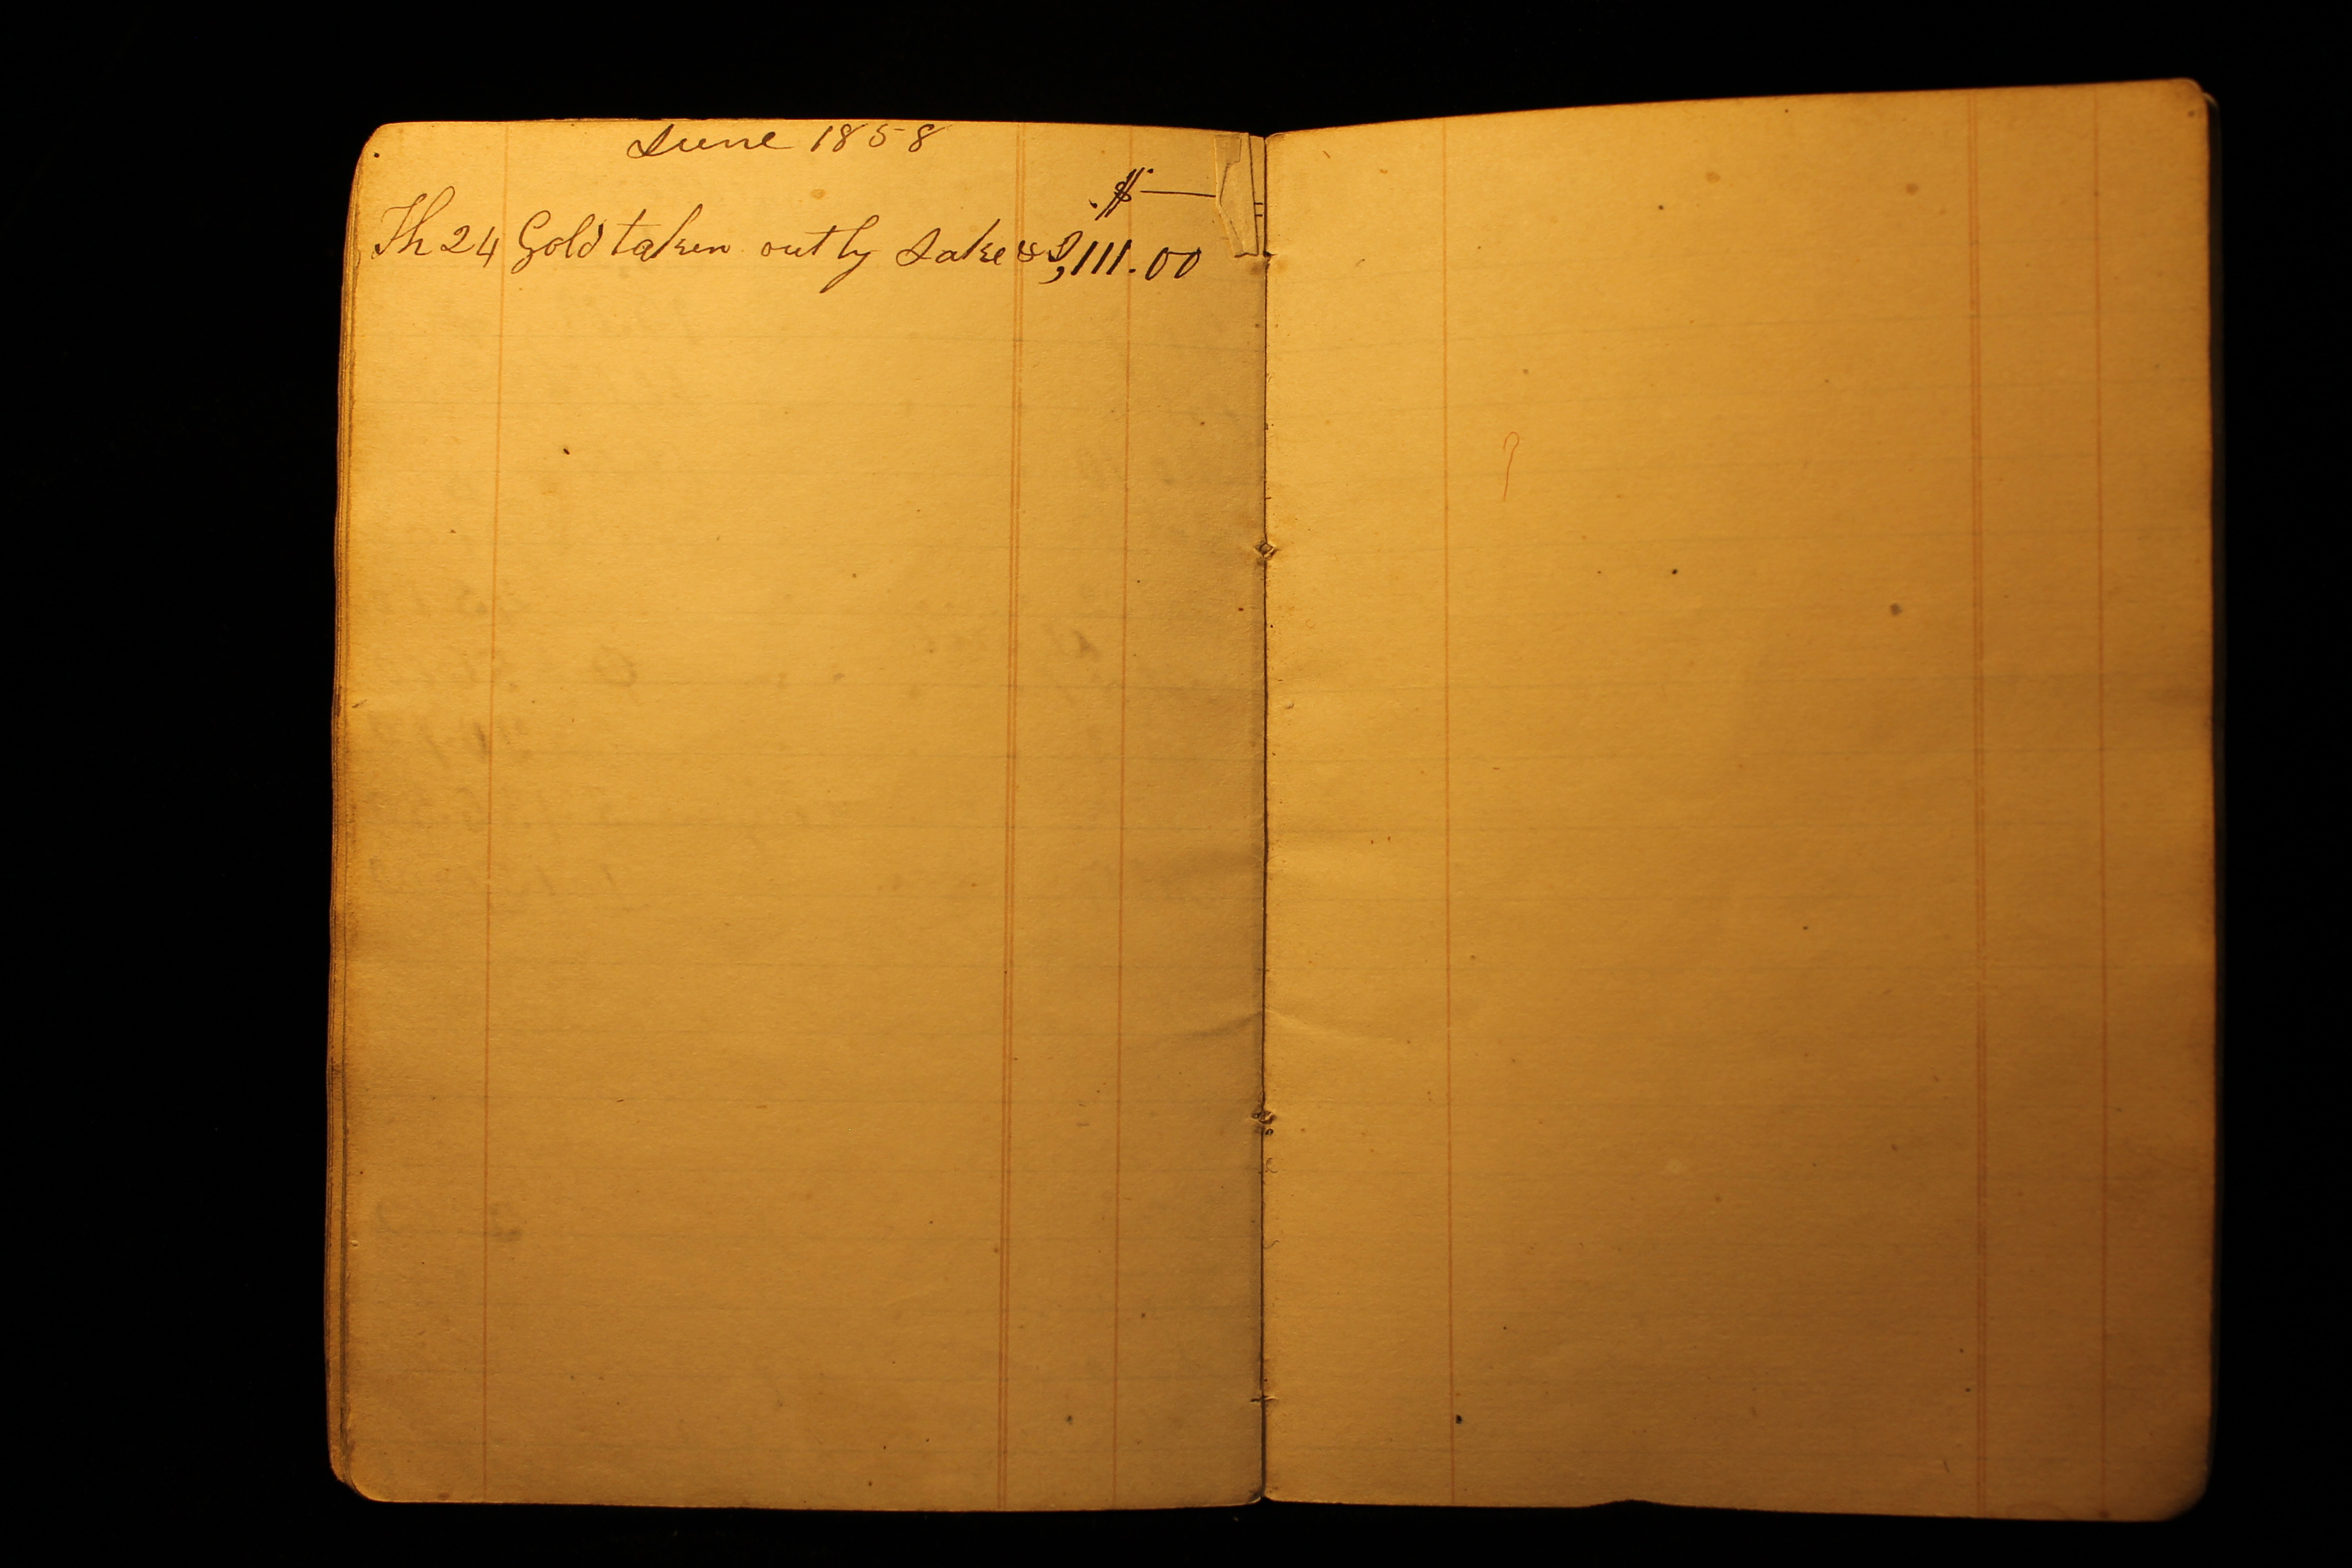 June 1858
$
Th 24 Gold taken out by Jake & I, 111.00